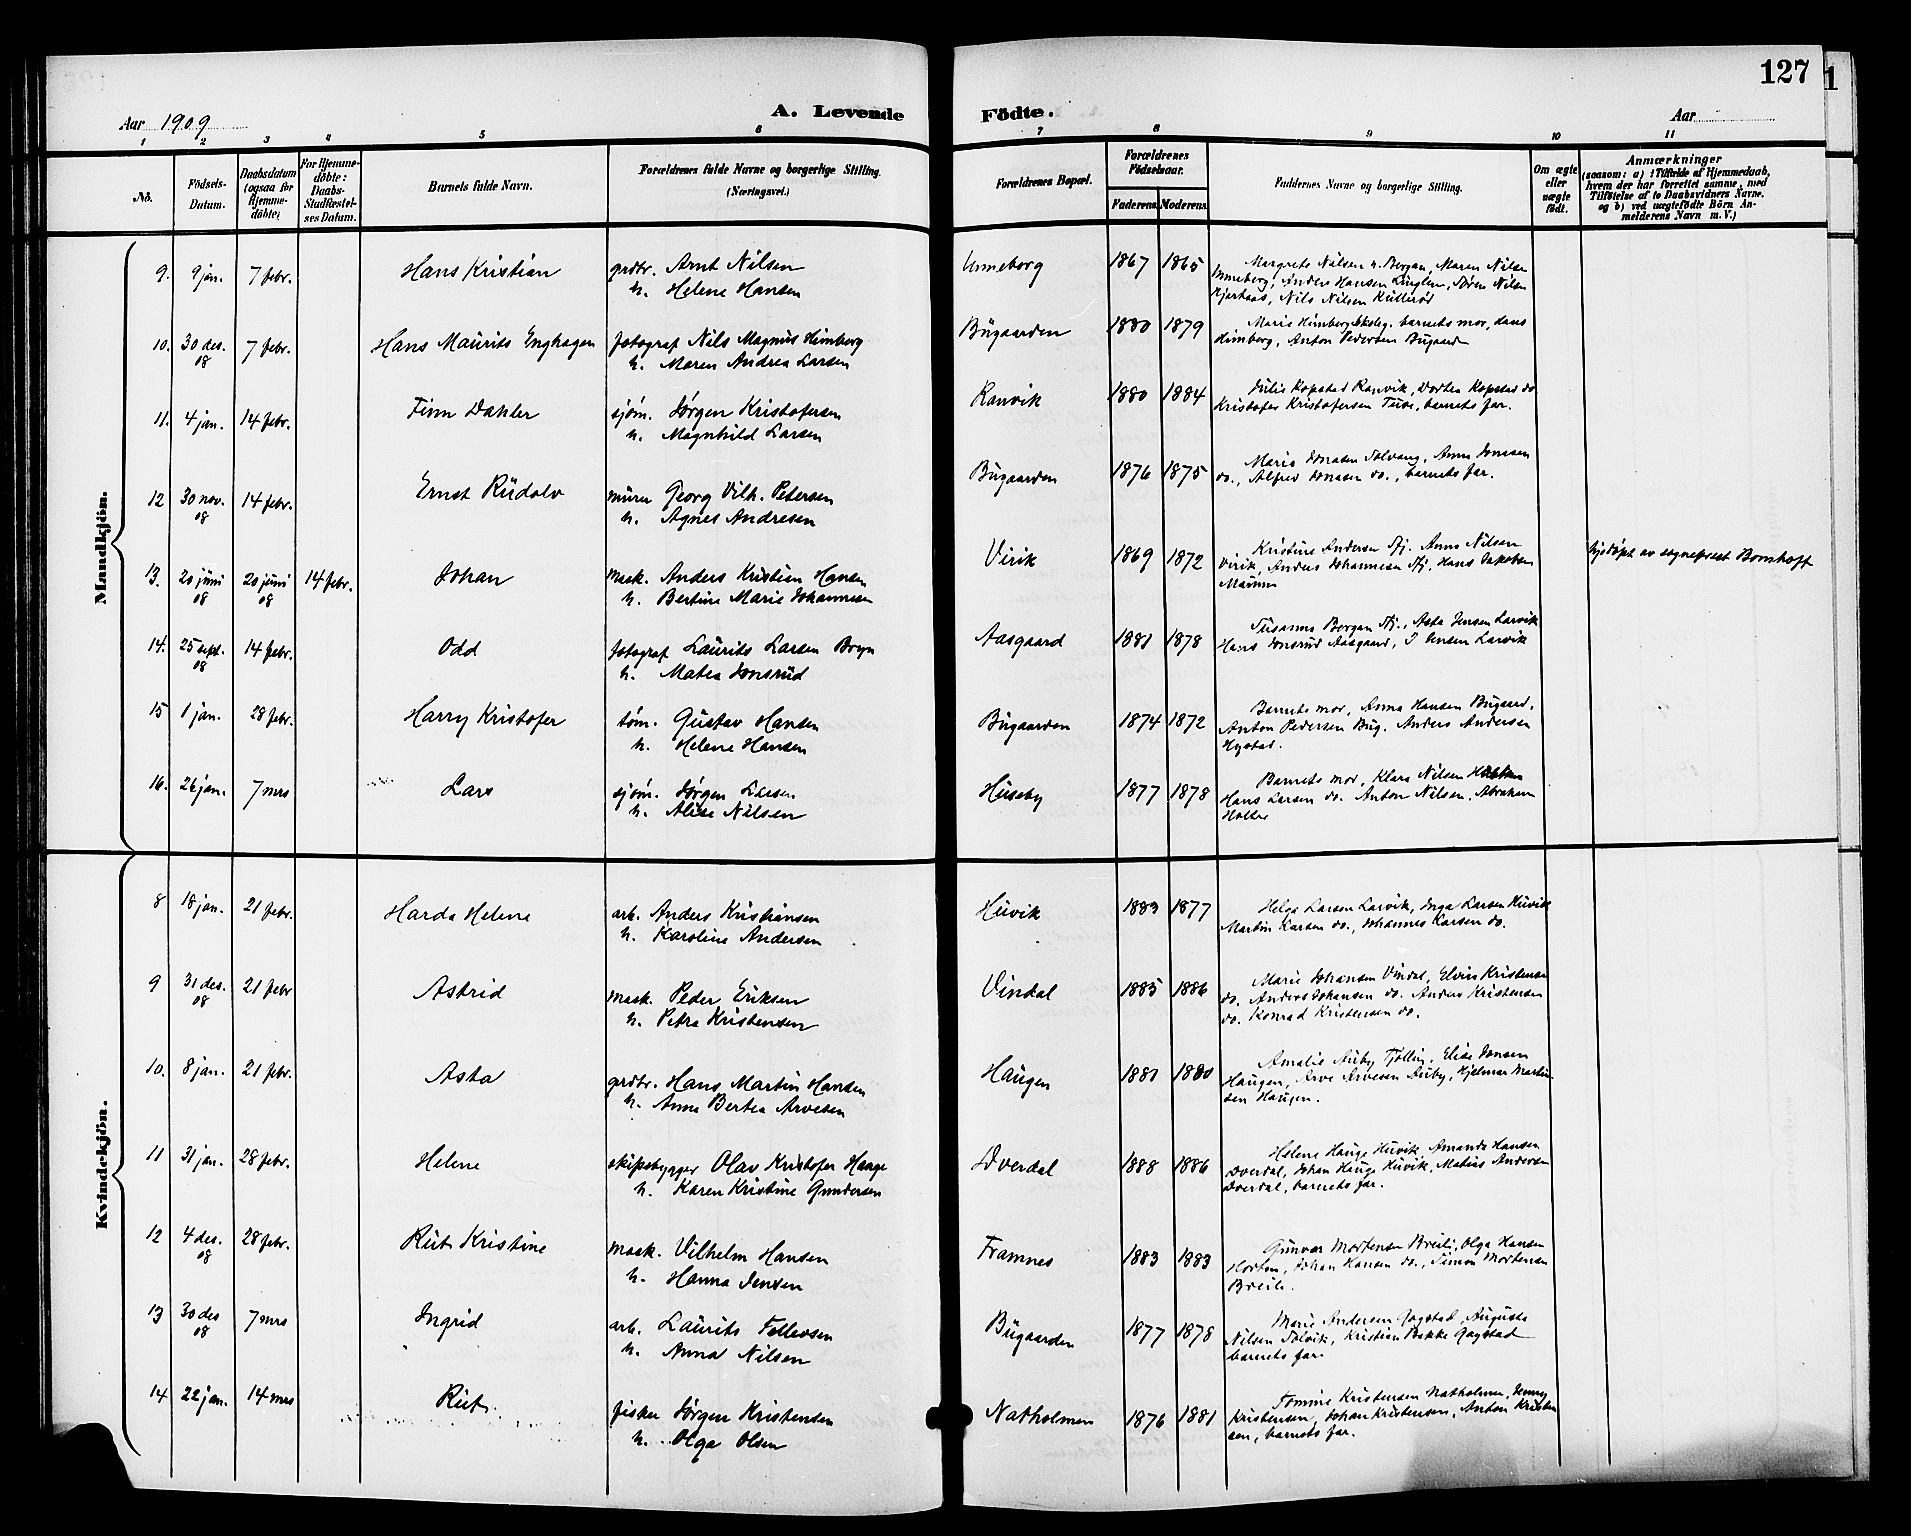 127
Aar 1909
A. Levende
Födte.
Aar
1 2 3 4 5 6 7 8 9 10 11
No.
Födsels-
Datum.
Daabsdatum
(ogsaa for
Hjemme-
döbte)
For Hjemme-
döbte:
Daabs-
Stadfæstel-
ses Datum.
Barnets fulde Navn.
Forældrenes fulde Navne og borgerlige Stilling.
(Næringsvei.)
Forældrenes Bopæl.
Forældrenes
Födselsaar.
Faderens. Moderens.
Faddernes Navne og borgerlige Stilling.
Om ægte
eller
uægte
födt.
Anmærkninger
(saasom: a) i Tilfælde af Hjemmedaab,
hvem der har forrettet samme, med
Tilföielse af to Daabsvidners Navne,
og b) ved uægtefödte Börn An-
melderens Navn m. V.)
Mandkjön.
9. 9 jan. 7 febr. Hans Kristian grdbr. Arnt Nilsen Unneberg 1867 1865 Margrete Nilsen n. Bergan, Maren Nilsen
h. Helene Hansen Unneberg, Anders Hansen Lingelem, Søren Nilsen
Hjertaas, Nils Nilsen Kullerød
10. 30 des. 7 febr. Hans Maurits Enghagen fotograf Nils Magnus Himberg Bugaarden 1880 1879 Marie Himberg barnets mor, Hans
08 h. Maren Andrea Larsen Himberg, Anton Pedersen Bugaard
11. 4 jan. 14 febr. Finn Dahler sjøm. Jørgen Kristofersen Ranvik 1880 1884 Julie Kopstad Ranvik, Dortea Kopstad do
h. Magnhild Larsen Kristofer Kristofersen Tuve, barnets far.
12 30 nov. 14 febr. Ernst Rudolv murer Georg Vilh. Petersen Bugaarden 1876 1875 Marie Jonasen Solvang, Anna Jonasen
08 h. Agnes Andresen do., Alfred Jonasen do., barnets far.
13. 20 juni 20 juni 14 febr. Johan mask. Anders Kristian Hansen Virik 1869 1872 Kristine Andersen Stj. Anna Nilsen hjdøpt av sogneprest Bomhoff
08 08 h. Bertine Marie Johannesen Virik, Anders Johannesen Stj. Hans Jakobsen
14. 25 sept. 14 febr. Odd fotograf Laurits Larsen Bryn Aasgaard 1881 1878 Susanna Bergan Stj., Asta Jensen Larvik
08 h. Matea Jonsrud Hans Jonsrud Aasgaard, J Jensen Larvik
15 1 jan. 28 febr. Harry Kristofer tøm. Gustav Hansen Bugaarden 1874 1872 Barnets mor, Anna Hansen Bugaard,
h. Helene Hansen Anton Pedersen Bug. Anders Andersen
Hystad.
16. 26 jan. 7 mrs Lars sjøm. Jørgen Larsen Huseby 1877 1878 Barnets mor, Klara Nilsen
h. Alise Nilsen Hans Larsen do. Anton Nilsen, Abraham
Holter
Kvindekjön.
8 18 jan. 21 febr. Harda Helene arb. Anders Kristiansen Huvik 1883 1877 Helga Larsen Larvik, Inga Larsen Huvik
h. Karoline Andersen Martin Larsen do., Johannes Larsen do.
9 31 des. 21 febr Astrid mask. Peder Eriksen Vindal 1885 1886 Marie Johansen Vindal, Elvine Kristensen
08 h. Petra Kristensen do. Anders Johansen do. Anders Kristensen
do. Konrad Kristensen do.
10. 8 jan. 21 febr. Asta grdbr. Hans Martin Hansen Haugen 1881 1880 Amalie Auby Tjølling, Elise Jonsen
h. Anna Bertea Arvesen Haugen, Arve Arvesen Auby, Hjelmar Martin
sen Haugen.
11 31 jan. 28 febr. Helene skipsbygger Olav Kristofer Hauge Dverdal 1888 1886 Helene Hauge Huvik, Amanda Hansen
h. Karen Kristine Gundersen Dverdal, Johan Hauge Huvik, Matias Andersen
Dverdal, barnets far.
12 4 des. 28 febr. Rut Kristine mask. Vilhelm Hansen Framnes 1883 1883 Gunvor Mortensen Breili, Olga Hansen
08 h. Hanna Jensen Horten, Johan Hansen do., Simon Mortensen
Breili.
13 30 des 7 mrs Ingrid arb. Laurits Tollevsen Bugaarden 1877 1878 Marie Andersen Gogstad, Augusta
08 h. Anna Nilsen Nilsen Solvik, Kristian Bakke Gogstad
barnets far.
14 22 jan. 14 mrs Rut fisker Jørgen Kristensen Natholmen 1876 1881 Tomine Kristensen Natholmen, Jenny
h. Olga Olsen Kristensen, Johan Kristensen, Anton Kristen
sen, barnets far.